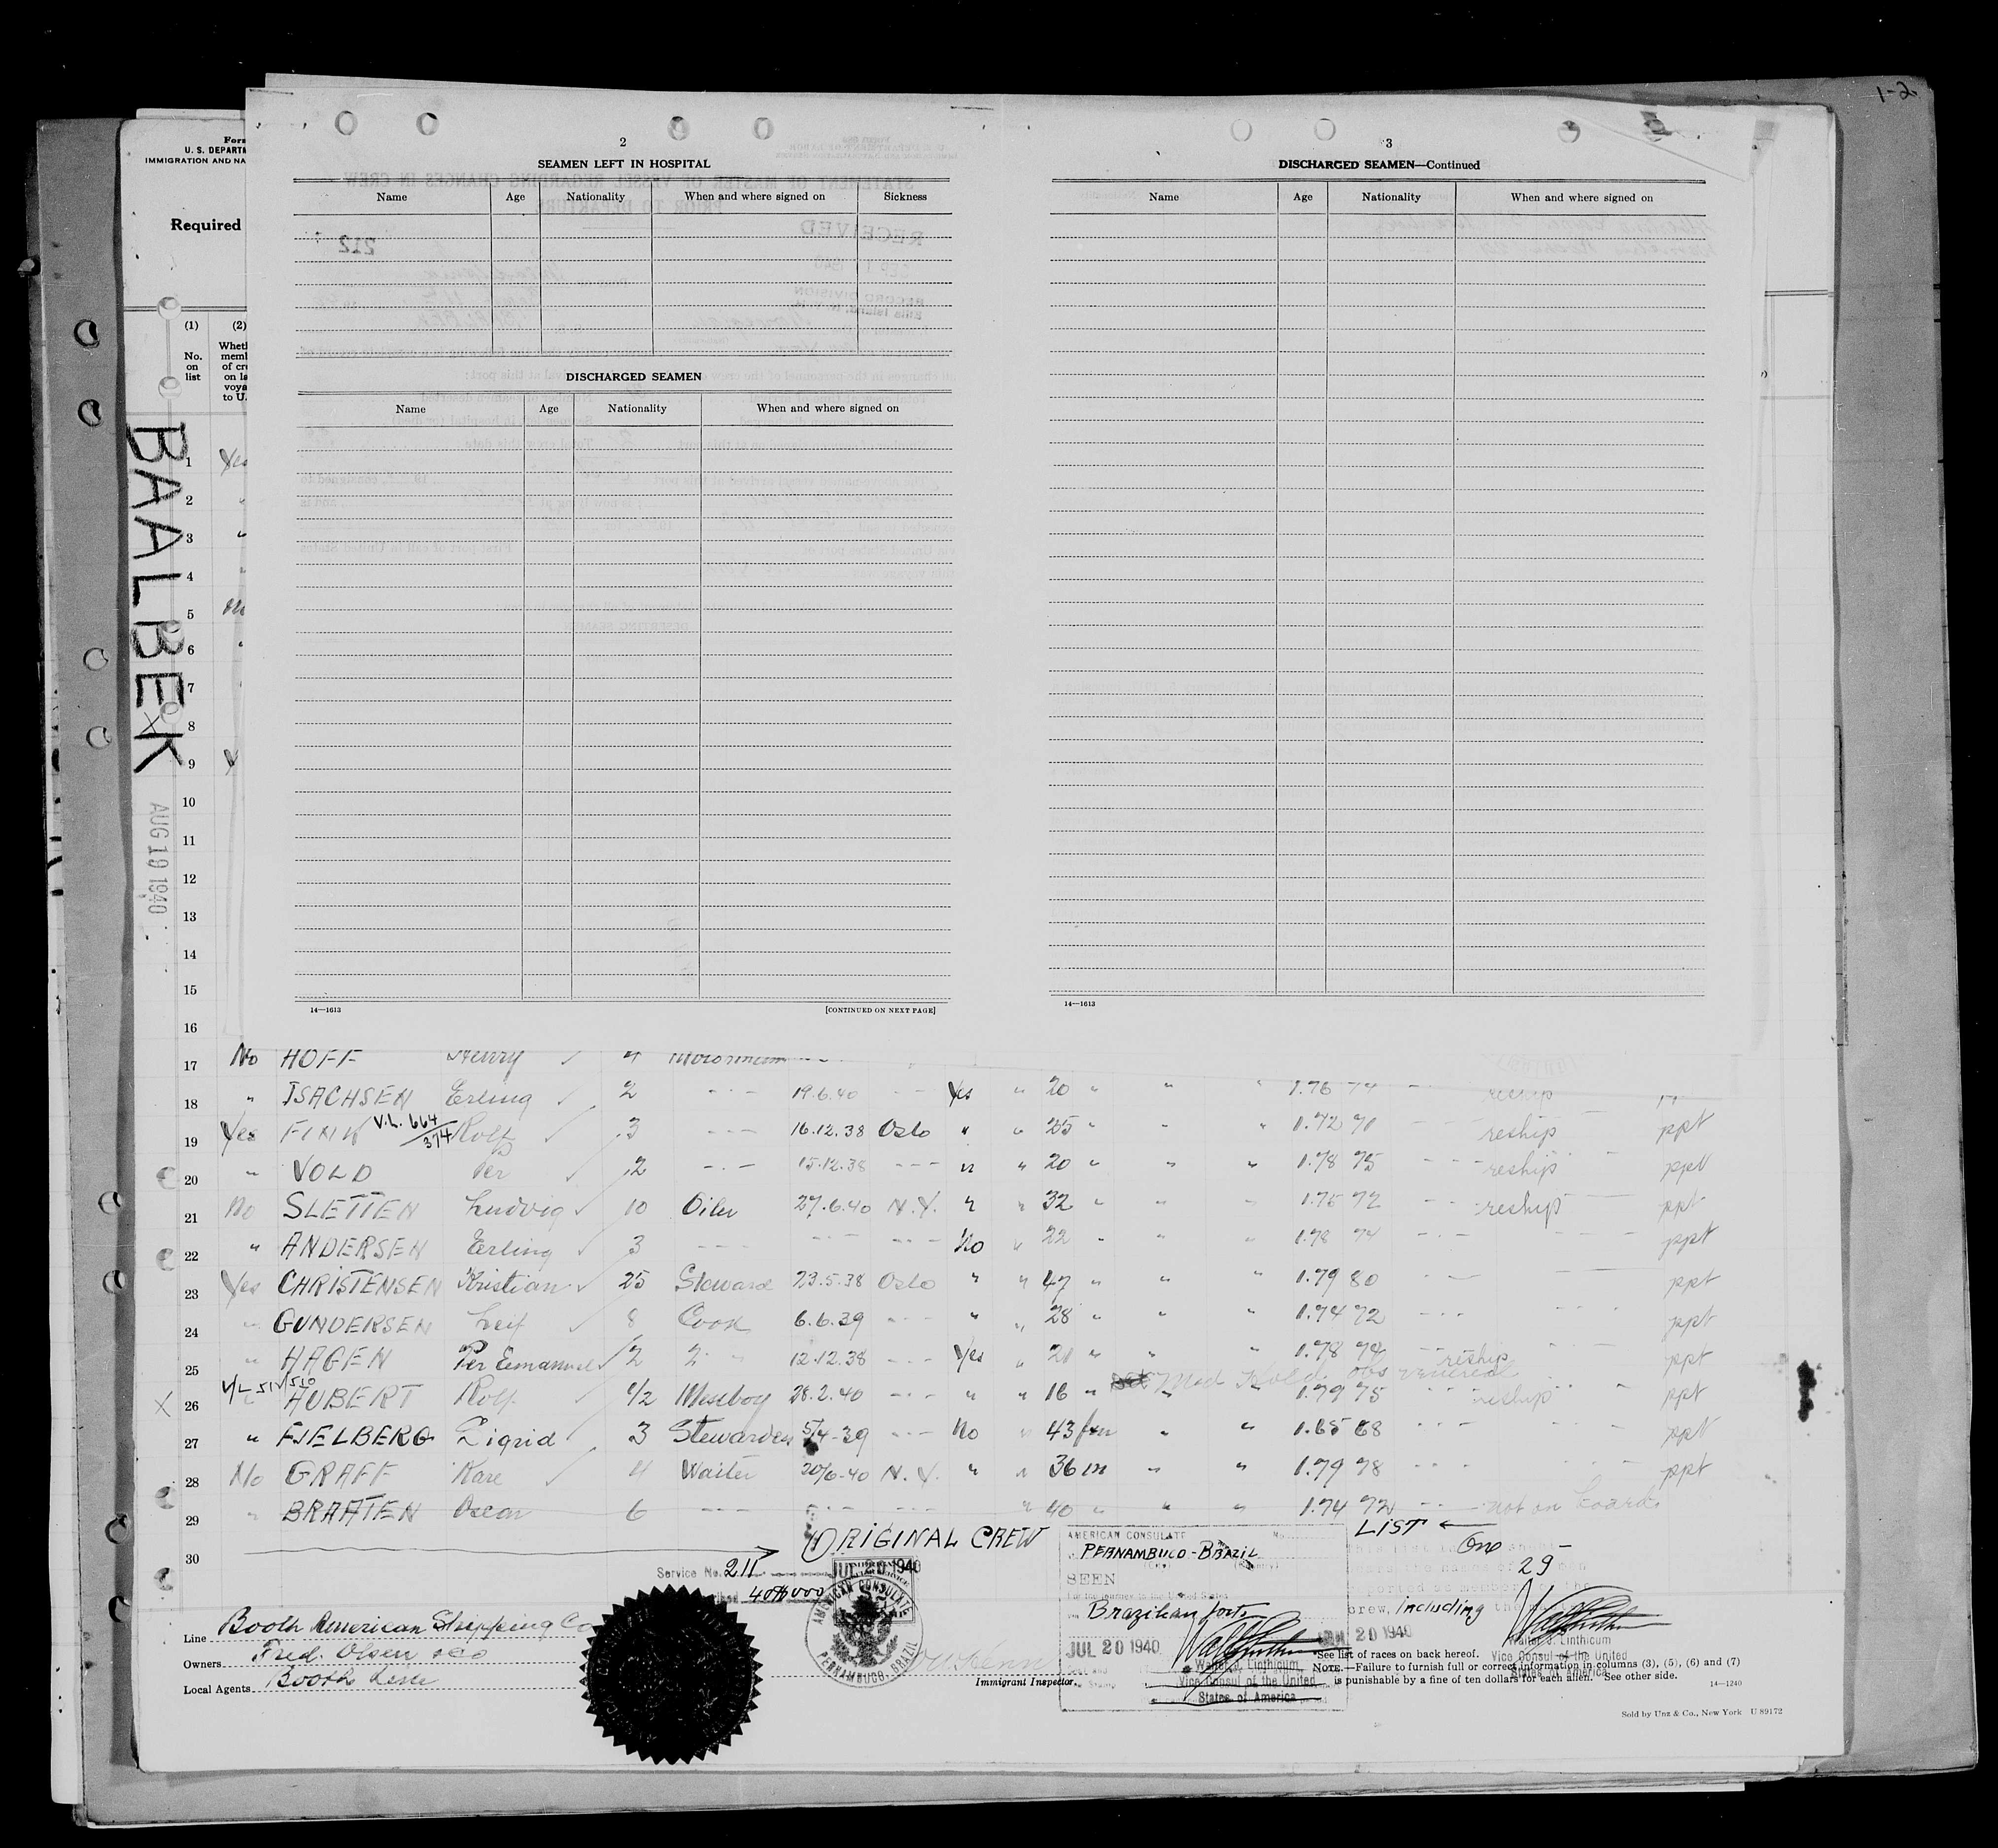 1-2
Form
U. S. DEPARTM
IMMIGRATION AND NA
Required
(1) (2)
No. on list
Wheth memb of cre on la voya to U.
BAALBEK
AUG 19 1940
2
SEAMEN LEFT IN HOSPITAL
Name Age Nationality When and where signed on Sickness
DISCHARGED SEAMEN
Name Age Nationality When and where signed on
14—1613 [CONTINUED ON NEXT PAGE]
3
DISCHARGED SEAMEN—Continued
Name Age Nationality When and where signed on
14—1613
1 Yes
2 "
3 "
4 "
5 No
6 "
7
8
9
10
11
12
13
14
15
16
17 No HOFF Henry 4
18 " ISACHSEN Erling 2 19.6.40 Yes " 20 " " " 1.76 74 reship
19 Yes FINK V.L. 664/374 Rolf 3 16.12.38 Oslo " " 25 " " 1.72 71 reship ppt
20 " VOLD Per 2 15.12.38 " " 20 " " " 1.78 75 reship ppt
21 No SLETTEN Ludvig 10 Oiler 27.6.40 N.Y. " " 32 " " " 1.75 72 reship ppt
22 " ANDERSEN Erling 3 No " 22 " " " 1.78 74 ppt
23 Yes CHRISTENSEN Kristian 25 Steward 23.5.38 Oslo " " 47 " " " 1.79 80 ppt
24 " GUNDERSEN Leif 8 Cook 6.6.39 " " 28 " " " 1.74 72 ppt
25 " HAGEN Per Emanuel 2 2 " 12.12.38 Yes " 21 " " 1.78 74 reship ppt
Med Hold. obs venereal
26 X HUBERT Rolf 1/2 Messboy 28.2.40 " " 16 " " 1.79 75 reship ppt
27 " FJELBERG Sigrid 3 Stewardess 5/4-39 No " 43 fem " " 1.65 68 ppt
28 No GRAFF Kare 4 Waiter 20/6-40 N.Y. " " 36 m " " 1.79 78 ppt
29 " BRAATEN Oscar 6 " 40 " " " 1.74 72 not on board
30
ORIGINAL CREW LIST
Service No. 211
JUL 20 1940
AMERICAN CONSULATE
PERNAMBUCO, BRAZIL
AMERICAN CONSULATE No.
PERNAMBUCO - BRAZIL
SEEN
For the journey to the United States
via Brazilian ports
JUL 20 1940
Walter J. Linthicum
Vice Consul of the United
States of America
One
29-
crew, including the
20 1940
Walter J. Linthicum
Vice Consul of the United
States of America
Line Booth American Shipping Co
Owners Fred. Olsen & Co
Local Agents Booth Line
Immigrant Inspector.
See list of races on back hereof.
NOTE.—Failure to furnish full or correct information in columns (3), (5), (6) and (7)
is punishable by a fine of ten dollars for each alien. See other side.
14—1240
Sold by Unz & Co., New York U 89172